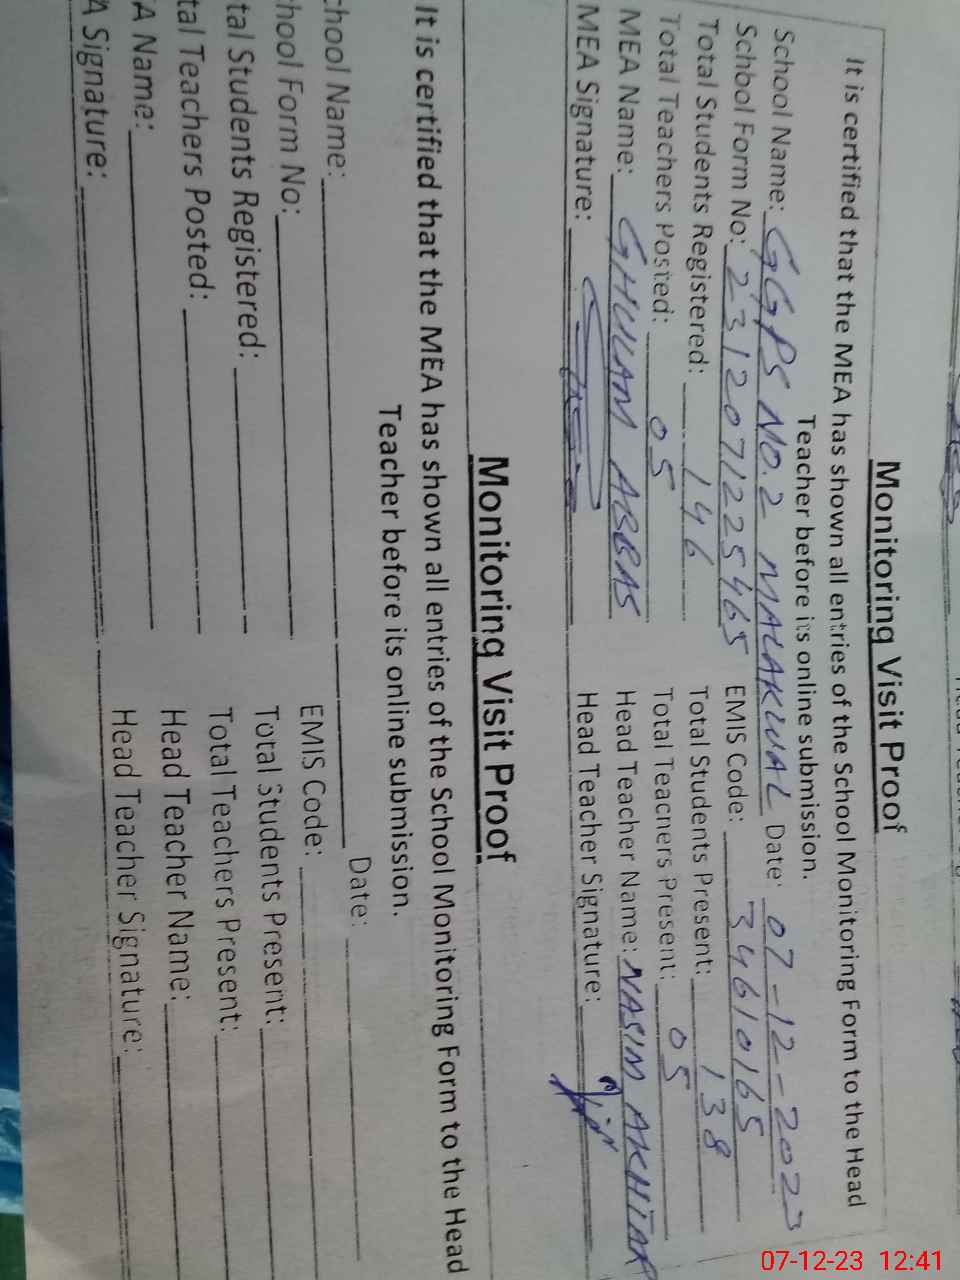 Monitoring Visit Proof
It is certified that the MEA has shown all entries of the School Monitoring Form to the Head
Teacher before its online submission.
School Name: GGPS NO.2 MALAKWAL Date: 07-12-2023
School Form No: 2312071225465 EMIS Code: 34610165
Total Students Registered: 146 Total Students Present: 138
Total Teachers Posted: 05 Total Teachers Present: 05
MEA Name: GHULAM ABBAS Head Teacher Name: NASIM AKHTAR
MEA Signature: Head Teacher Signature:
Monitoring Visit Proof
It is certified that the MEA has shown all entries of the School Monitoring Form to the Head
Teacher before its online submission.
chool Name: Date:
hool Form No: EMIS Code:
tal Students Registered: Total Students Present:
tal Teachers Posted: Total Teachers Present:
A Name: Head Teacher Name:
A Signature: Head Teacher Signature:
07-12-23 12:41